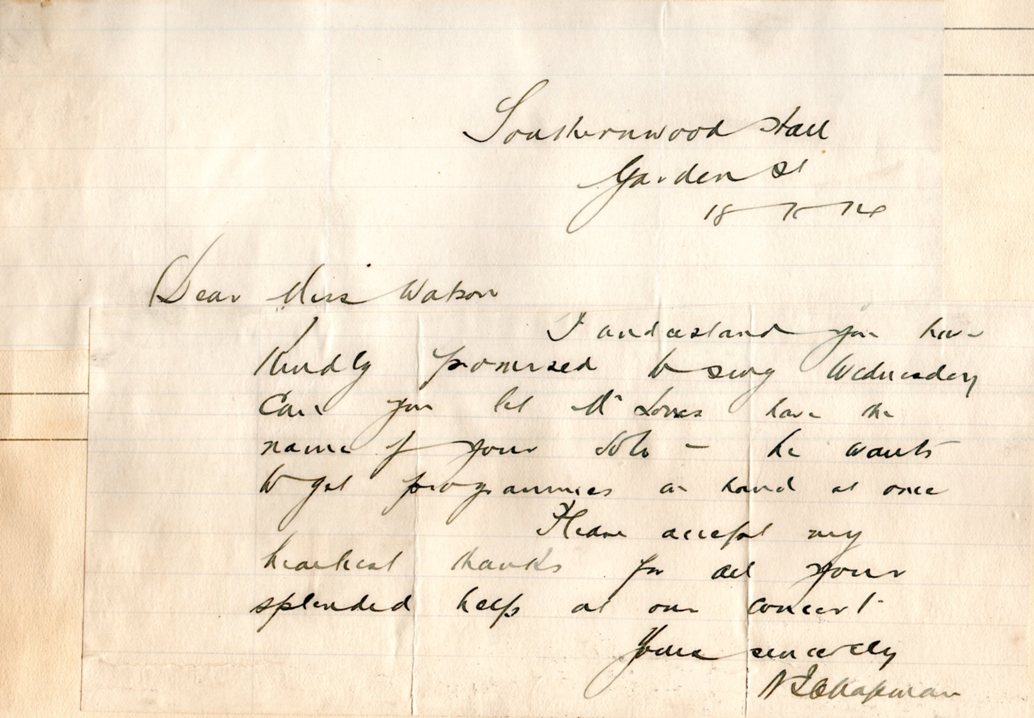 Southernwood Hall
Garden St
Dear Miss Watson
I understand you have
kindly promised to sing Wednesday
Can you let Mr have the
name of your solo – he wants
to get programmes in hand at once
Please accept my
heartiest thanks for all your
splendid help at our concert
Yours sincerely
Chapman